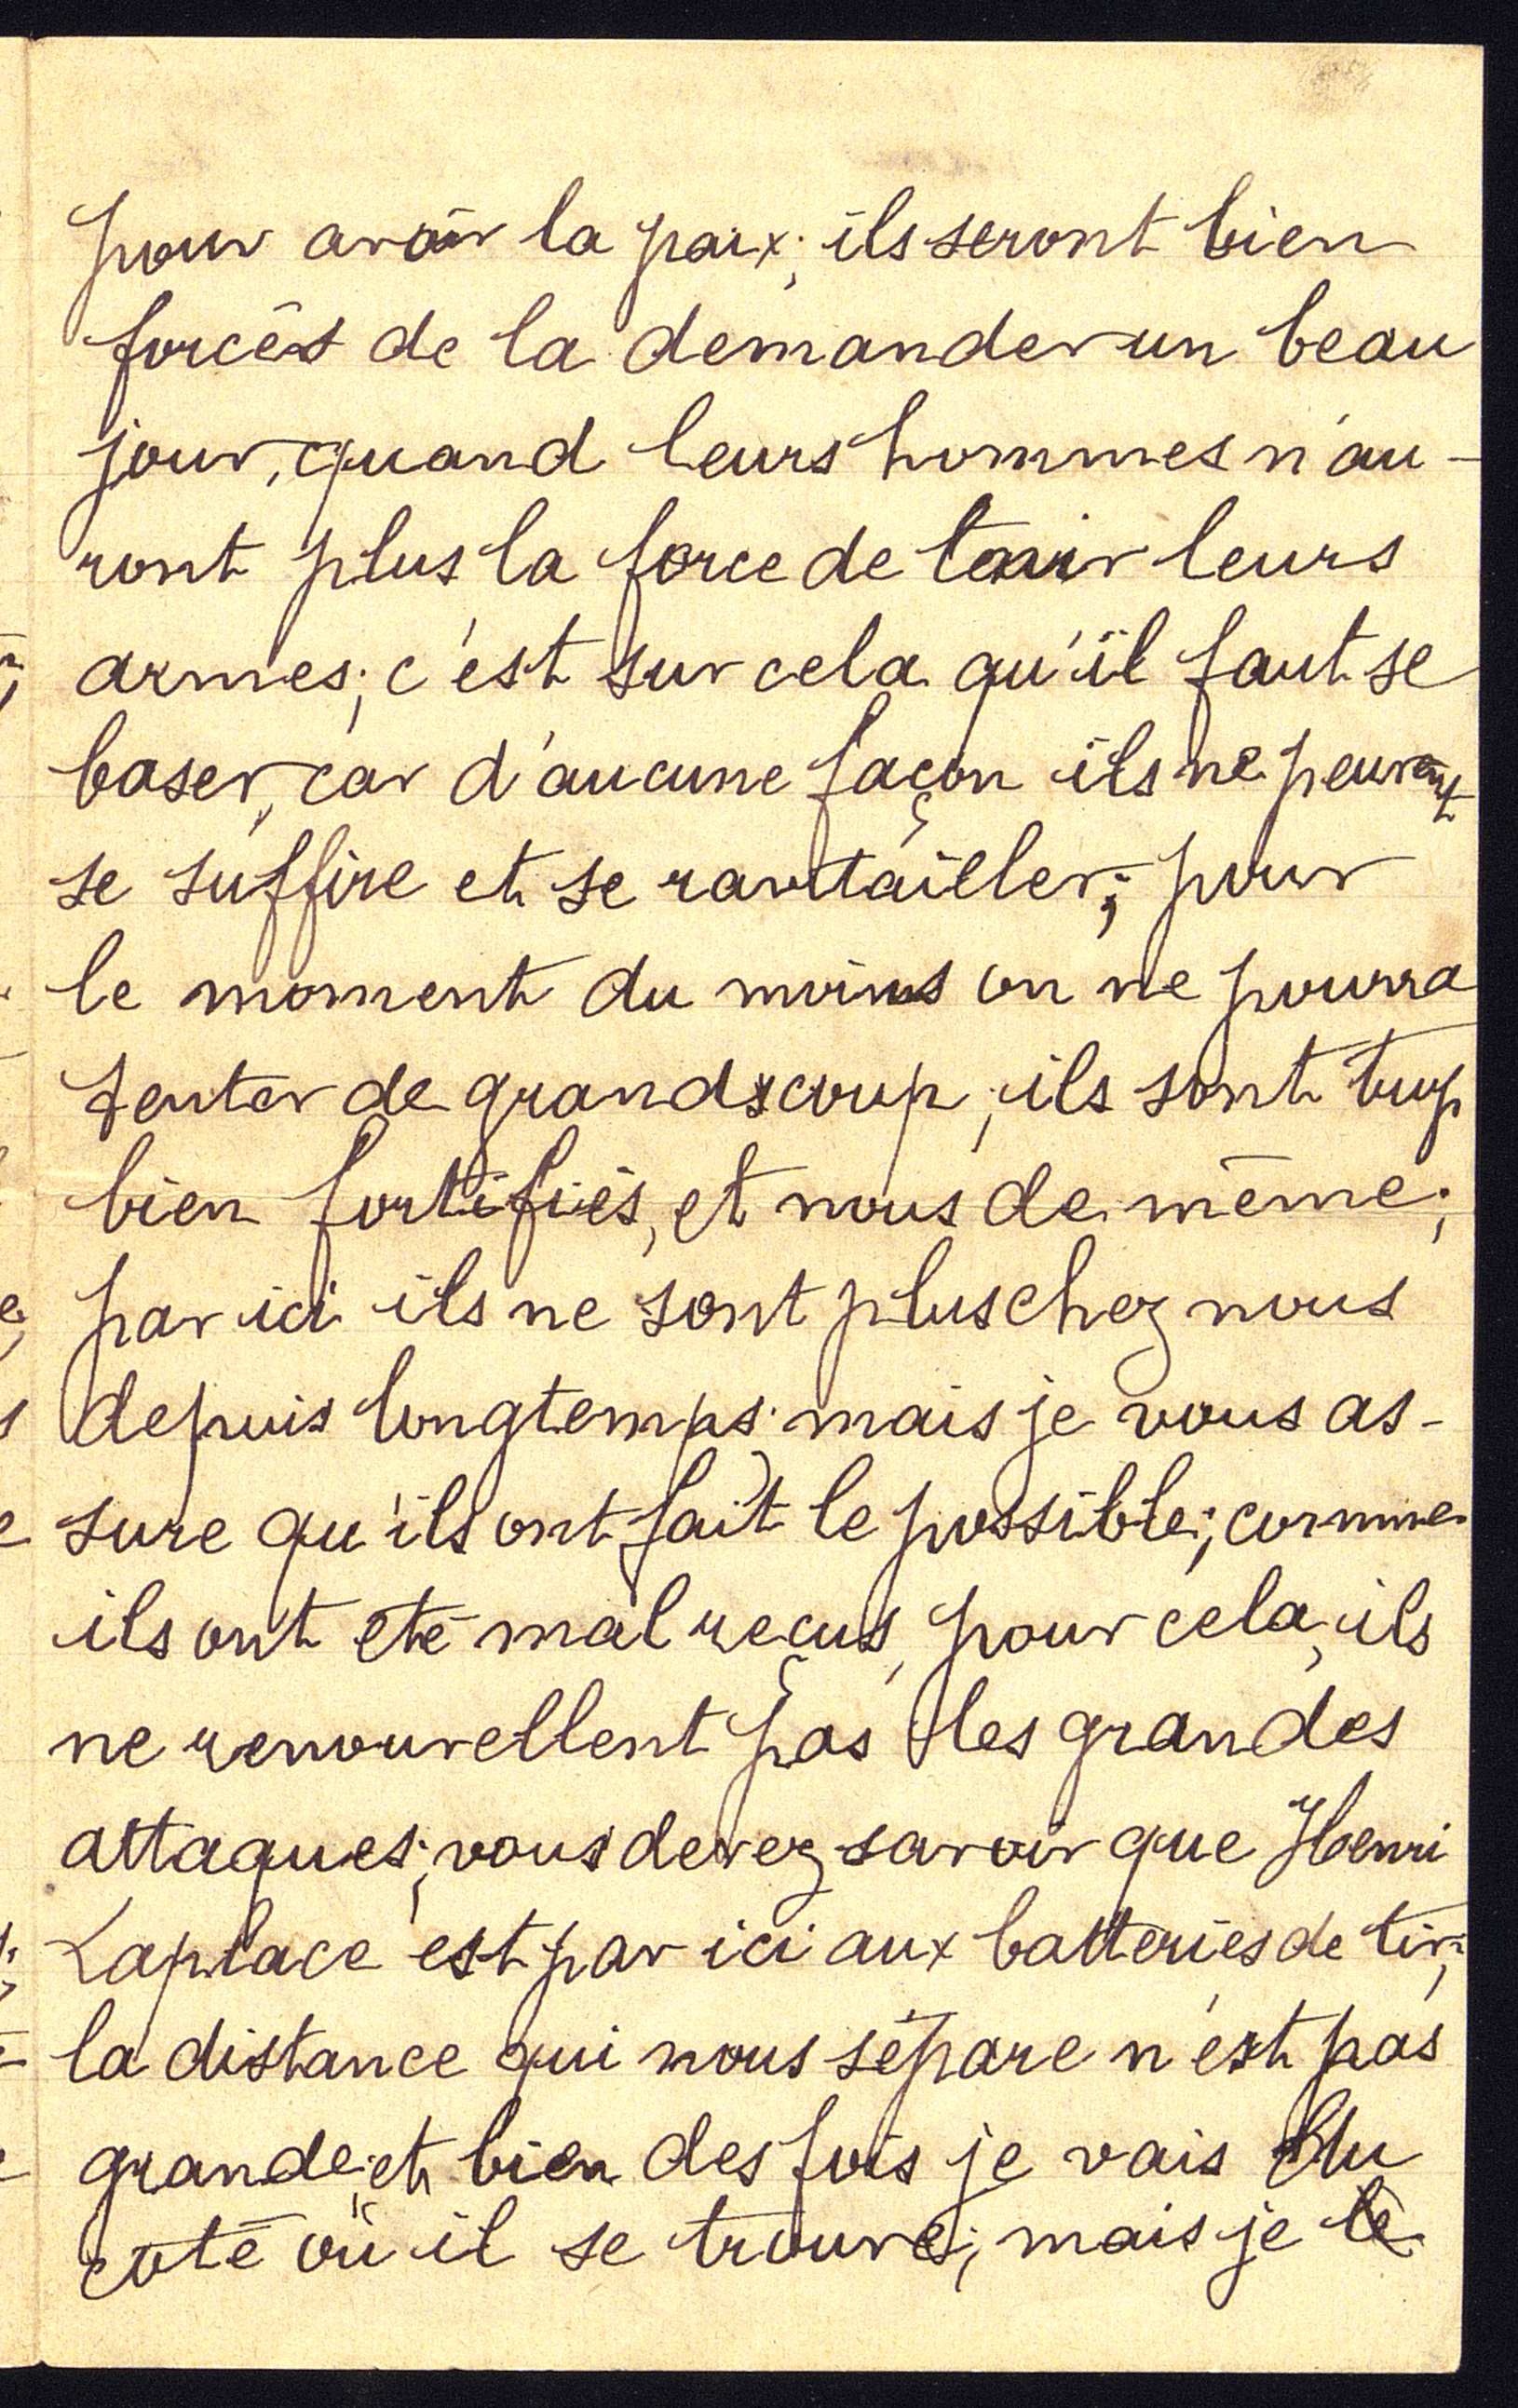 pour avoir la paix; ils seront bien
forcés de la demander un beau
jour, quand leurs hommes n'au-
ront plus la force de tenir leurs
armes; c'est sur cela qu'il faut se
baser, car d'aucune façon ils ne peuvent
se suffire et se ravitailler; pour
le moment du moins on ne pourra
tenter de grands coup; ils sont trop
bien fortifiés, et nous de même;
par ici ils ne sont plus chez nous
depuis longtemps; mais je vous as-
sure qu'ils ont fait le possible; comme
ils ont été mal reçus, pour cela, ils
ne renouvellent pas les grandes
attaques; vous devez savoir que Henri
Laplace est par ici aux batteries de tir;
la distance qui nous sépare n'est pas
grande; et bien des fois je vais du
coté où il se trouve; mais je le